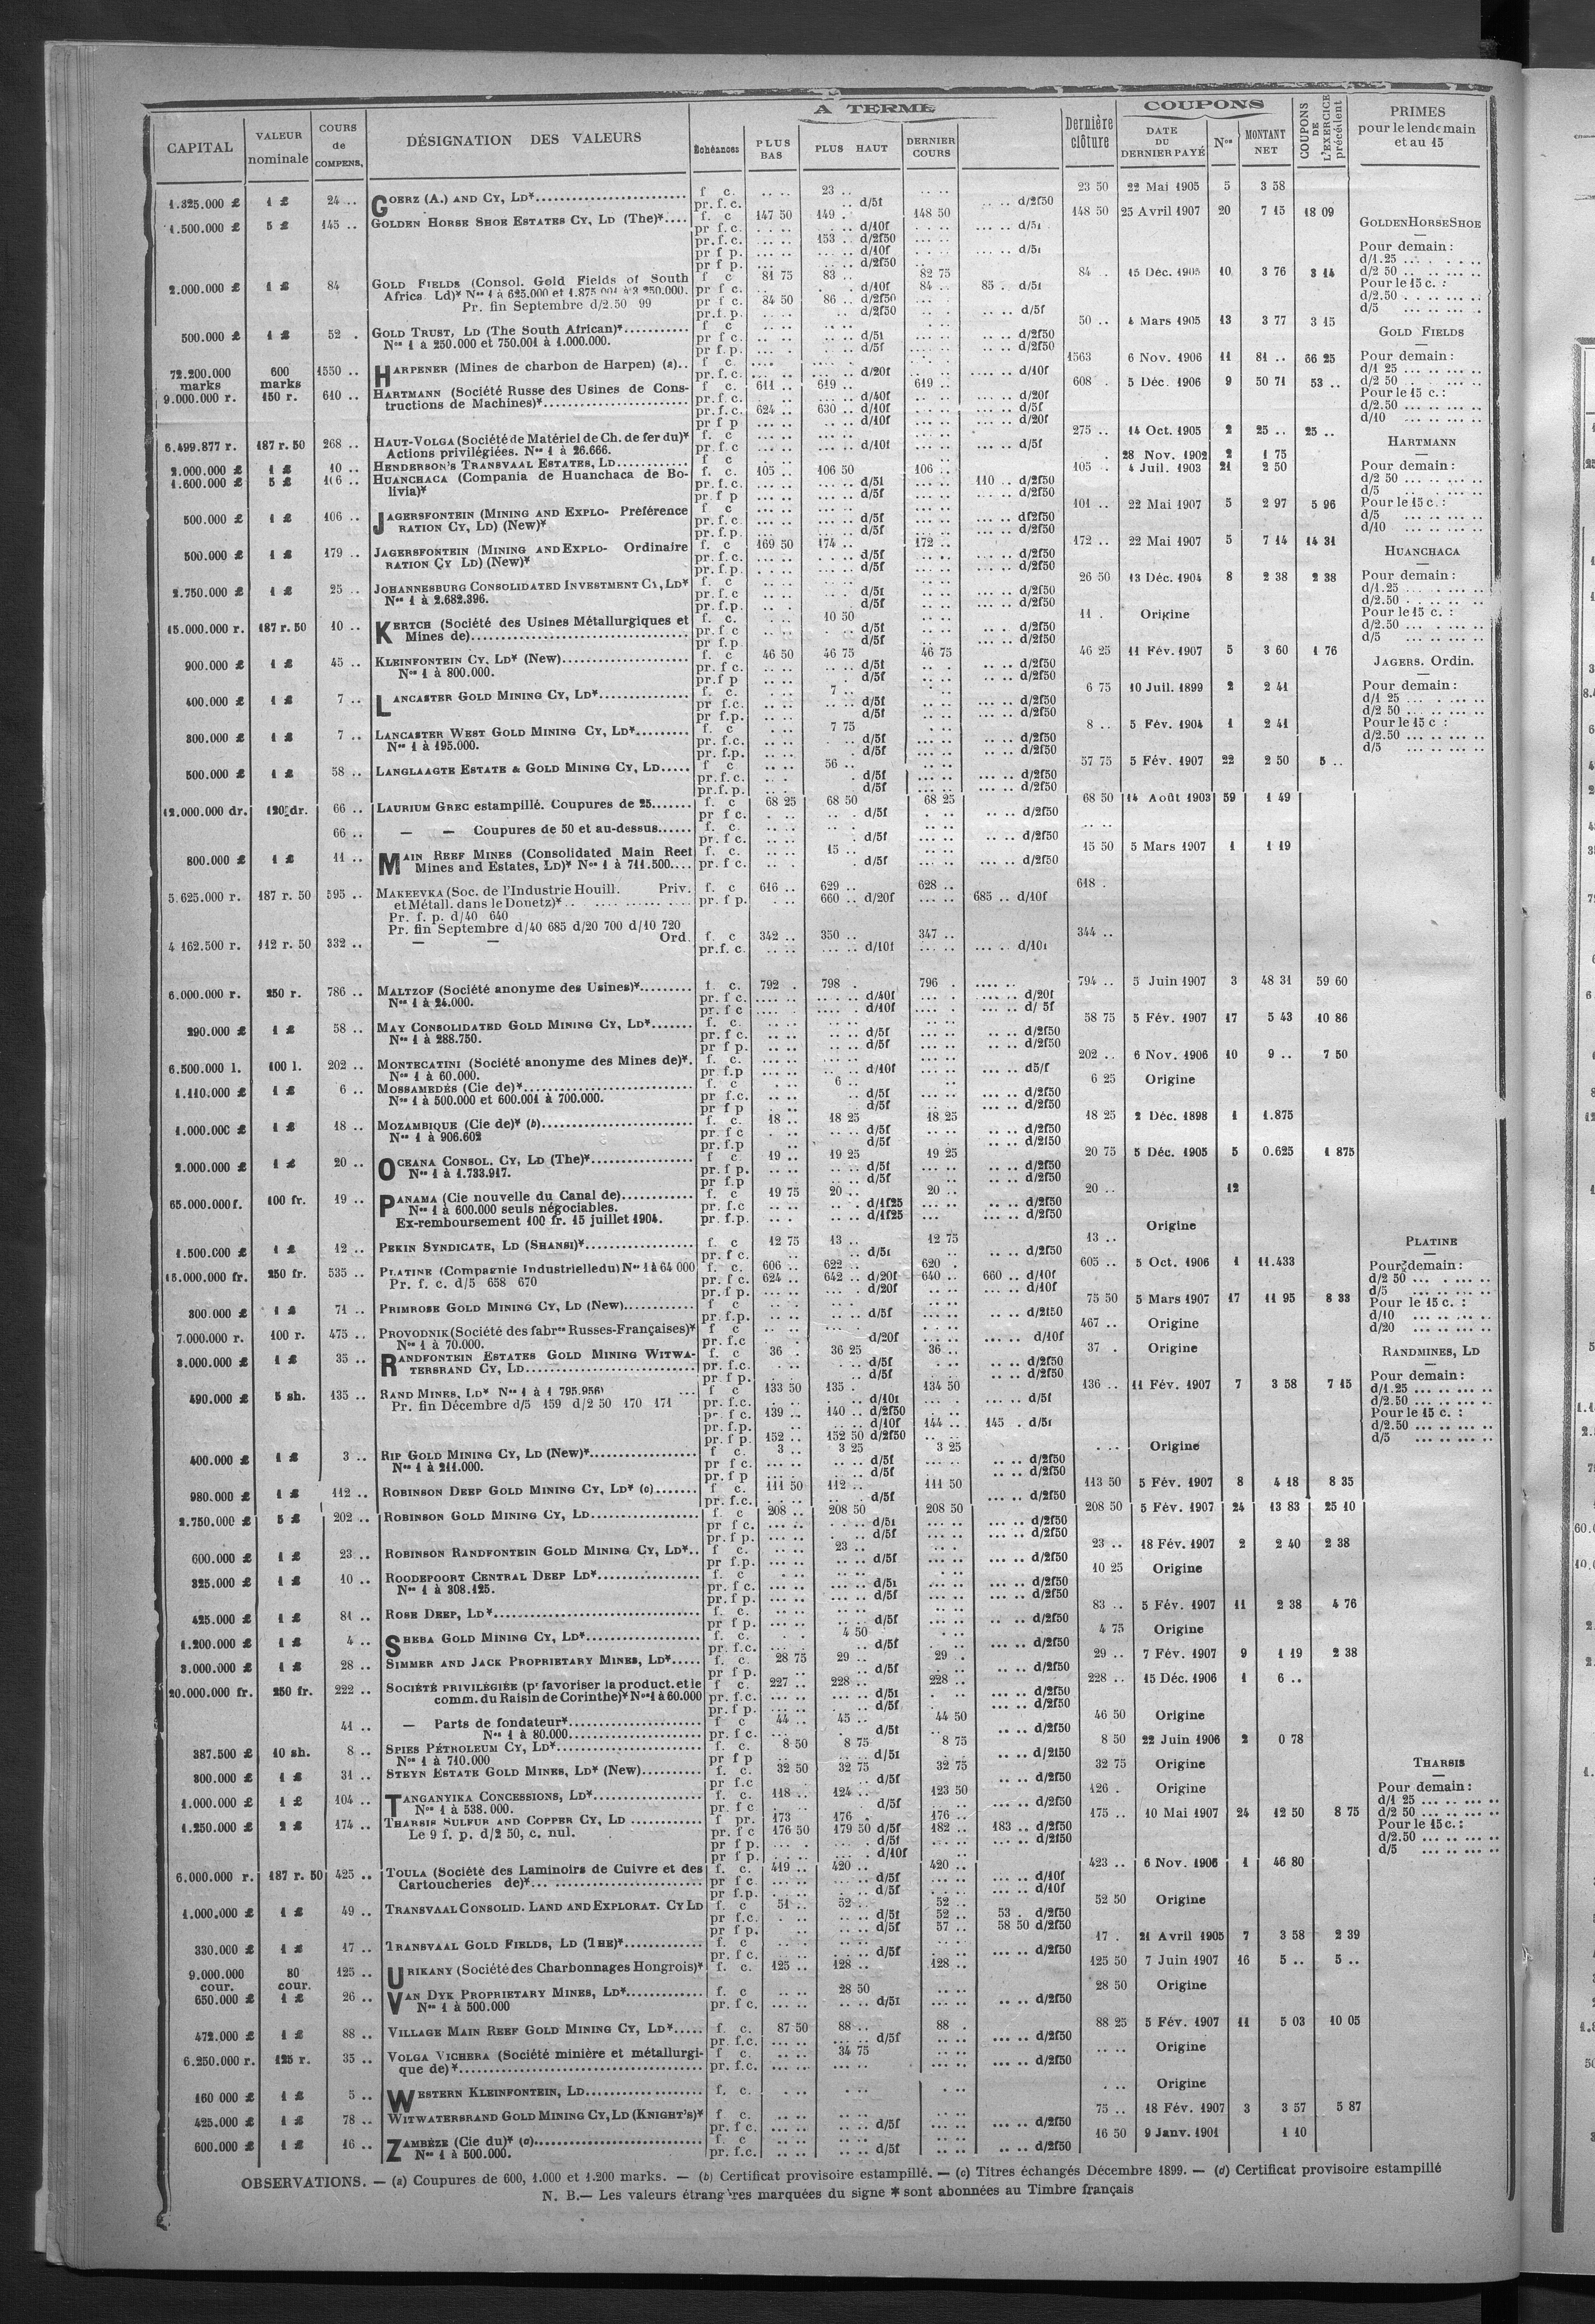 A TERME
COUPONS
CAPITAL VALEUR nominale COURS de COMPENS. DÉSIGNATION DES VALEURS Échéances PLUS BAS PLUS HAUT DERNIER COURS Dernière clôture DATE DU DERNIER PAYÉ Nos MONTANT NET COUPONS DE L'EXERCICE précédent PRIMES pour le lendemain et au 15
1.325.000 £ 1 £ 24 .. GOERZ (A.) AND CY, LD* f c. 23 .. 23 50 22 Mai 1905 5 3 58
pr. f. c. d/5f d/2f50
1.500.000 £ 5 £ 145 .. GOLDEN HORSE SHOE ESTATES CY, LD (THE)* f. c 147 50 149 .. 148 50 148 50 25 Avril 1907 20 7 15 18 09
pr f. c. d/10f d/5f
pr. f. c. 153 .. d/2f50
pr f p. d/10f d/5f
pr f p. d/2f50
2.000.000 £ 1 £ 84 GOLD FIELDS (Consol. Gold Fields of South f c 81 75 83 .. 82 75 84 . 15 Déc. 1905 10 3 76 3 14
Africa Ld)* Nos 1 à 625.000 et 1.875.001 à 3.250.000. pr f c. d/10f 84 .. 85 . d/5f
Pr. fin Septembre d/2.50 99 pr f c. 84 50 86 .. d/2f50
pr. f. p. d/2f50 d/5f
500.000 £ 1 £ 52 . GOLD TRUST, LD (The South African)* f c 50 .. 4 Mars 1905 13 3 77 3 15
Nos 1 à 250.000 et 750.001 à 1.000.000. pr f c. d/5f d/2f50
pr f. p. d/5f d/2f50
72.200.000 marks 600 marks 1550 .. HARPENER (Mines de charbon de Harpen) (a).. f c. 1563 6 Nov. 1906 11 81 .. 66 25
pr. f. c. d/20f d/10f
9.000.000 r. 150 r. 610 .. HARTMANN (Société Russe des Usines de Cons- f c. 611 .. 619 .. 619 .. 608 . 5 Déc. 1906 9 50 71 53 ..
tructions de Machines)* pr. f. c. d/40f d/20f
pr. f. c. 624 .. 630 .. d/10f d/5f
pr f p d/10f d/20f
6.499.877 r. 187 r. 50 268 .. HAUT-VOLGA (Société de Matériel de Ch. de fer du)* f. c 275 .. 14 Oct. 1905 2 25 .. 25 ..
Actions privilégiées. Nos 1 à 26.666. pr. f. c d/10f d/5f
2.000.000 £ 1 £ 10 .. HENDERSON'S TRANSVAAL ESTATES, LD f c 28 Nov. 1902 2 1 75
1.600.000 £ 5 £ 106 .. HUANCHACA (Compania de Huanchaca de Bo- f. c. 105 .. 106 50 106 .. 105 . 4 Juil. 1903 21 2 50
livia)* pr. f. c. d/5f 110 .. d/2f50
pr. f p d/5f d/2f50
500.000 £ 1 £ 106 .. JAGERSFONTEIN (MINING AND EXPLO- Préférence f c 101 .. 22 Mai 1907 5 2 97 5 96
RATION CY, LD) (New)* pr. f. c. d/5f df2f50
pr. f. p. d/5f d/2f50
500.000 £ 1 £ 179 .. JAGERSFONTEIN (MINING AND EXPLO- Ordinaire f. c 169 50 174 .. 172 .. 172 .. 22 Mai 1907 5 7 14 14 31
RATION CY LD) (New)* pr. f. c. d/5f d/2f50
pr. f. p. d/5f d/2f50
2.750.000 £ 1 £ 25 .. JOHANNESBURG CONSOLIDATED INVESTMENT CY, LD* f. c 26 50 13 Déc. 1904 8 2 38 2 38
Nos 1 à 2.682.396. pr. f. c d/5f d/2f50
pr. f. p. d/5f d/2f50
15.000.000 r. 187 r. 50 10 .. KERTCH (Société des Usines Métallurgiques et f. c. 10 50 11 . Origine
Mines de) pr. f c d/5f d/2f50
pr f. p. d/5f d/2f50
900.000 £ 1 £ 45 .. KLEINFONTEIN CY, LD* (New) f. c 46 50 46 75 46 75 46 25 11 Fév. 1907 5 3 60 1 76
Nos 1 à 800.000. pr. f c. d/5f d/2f50
pr. f p d/5f d/2f50
400.000 £ 1 £ 7 .. LANCASTER GOLD MINING CY, LD* f. c. 7 .. 6 75 10 Juil. 1899 2 2 41
pr f. c. d/5f d/2f50
pr f. p. d/5f d/2f50
300.000 £ 1 £ 7 .. LANCASTER WEST GOLD MINING CY, LD* f. c 7 75 8 .. 5 Fév. 1904 1 2 41
Nos 1 à 195.000. pr. f. c. d/5f d/2f50
pr. f. p. d/5f d/2f50
500.000 £ 1 £ 58 .. LANGLAAGTE ESTATE & GOLD MINING CY, LD f c 56 .. 57 75 5 Fév. 1907 22 2 50 5 ..
pr. f. c. d/5f d/2f50
pr. f. p. d/5f d/2f50
12.000.000 dr. 120 dr. 66 .. LAURIUM GREC estampillé. Coupures de 25 f. c 68 25 68 50 68 25 68 50 14 Août 1903 59 1 49
pr f c. d/5f d/2f50
66 .. — — Coupures de 50 et au-dessus f. c.
pr. f c. d/5f d/2f50
800.000 £ 1 £ 11 .. MAIN REEF MINES (Consolidated Main Reef f. c. 15 .. 15 50 5 Mars 1907 1 1 19
Mines and Estates, LD)* Nos 1 à 711.500 pr. f c. d/5f d/2f50
5.625.000 r. 187 r. 50 595 .. MAKEEVKA (Soc. de l'Industrie Houill. Priv. f. c 616 .. 629 .. 628 .. 618 .
et Métall. dans le Donetz)* pr. f p. 660 .. d/20f 685 .. d/10f
Pr. f. p. d/40 640
Pr. fin Septembre d/40 685 d/20 700 d/10 720
4 162.500 r. 112 r. 50 332 .. — — Ord. f. c 342 .. 350 .. 347 .. 344 ..
pr. f. c. d/10f d/10f
6.000.000 r. 250 r. 786 .. MALTZOF (Société anonyme des Usines)* f. c. 792 . 798 . 796 . 794 .. 5 Juin 1907 3 48 31 59 60
Nos 1 à 24.000. pr. f c. d/40f d/20f
pr. f c d/10f d/ 5f
290.000 £ 1 £ 58 .. MAY CONSOLIDATED GOLD MINING CY, LD* f. c. 58 75 5 Fév. 1907 17 5 43 10 86
Nos 1 à 288.750. pr. f c. d/5f d/2f50
pr f p. d/5f d/2f50
6.500.000 l. 100 l. 202 .. MONTECATINI (Société anonyme des Mines de)*. f. c. 202 .. 6 Nov. 1906 10 9 .. 7 50
Nos 1 à 60.000. pr. f. p d/10f d5/f
1.110.000 £ 1 £ 6 .. MOSSAMEDÈS (Cie de)* f. c 6 .. 6 25 Origine
Nos 1 à 500.000 et 600.001 à 700.000. pr f. c. d/5f d/2f50
pr f p d/5f d/2f50
1.000.000 £ 1 £ 18 .. MOZAMBIQUE (Cie de)* (b) f. c. 18 .. 18 25 18 25 18 25 2 Déc. 1898 1 1.875
Nos 1 à 906.602 pr. f c d/5f d/2f50
pr. f. p d/5f d/2f50
2.000.000 £ 1 £ 20 .. OCEANA CONSOL. CY, LD (The)* f c. 19 .. 19 25 19 25 20 75 5 Déc. 1905 5 0.625 1 875
Nos 1 à 1.733.917. pr. f p. d/5f d/2f50
pr f. p d/5f d/2f50
65.000.000 f. 100 fr. 19 .. PANAMA (Cie nouvelle du Canal de) f. c 19 75 20 .. 20 .. 20 .. 12
Nos 1 à 600.000 seuls négociables. pr. f. c d/1f25 d/2f50
Ex-remboursement 100 fr. 15 juillet 1904. pr. f. p. d/1f25 d/2f50 Origine
1.500.000 £ 1 £ 12 .. PEKIN SYNDICATE, LD (SHANSI)* f. c 12 75 13 .. 12 75 13 ..
pr. f c. d/5f d/2f50
15.000.000 fr. 250 fr. 535 .. PLATINE (Compagnie Industrielle du) Nos 1 à 64 000 f. c. 606 .. 622 .. 620 . 605 .. 5 Oct. 1906 1 11.433
Pr. f. c. d/5 658 670 pr. f c. 624 .. 642 .. d/20f 640 .. 660 .. d/10f
pr. f p. d/20f d/10f
300.000 £ 1 £ 71 .. PRIMROSE GOLD MINING CY, LD (New) f c 75 50 5 Mars 1907 17 11 95 8 33
pr. f. p. d/5f d/2f50
7.000.000 r. 100 r. 475 .. PROVODNIK (Société des fabres Russes-Françaises)* f c 467 .. Origine
Nos 1 à 70.000. pr. f. c d/20f d/10f
3.000.000 £ 1 £ 35 .. RANDFONTEIN ESTATES GOLD MINING WITWA- f. c 36 . 36 25 36 .. 37 . Origine
TERSRAND CY, LD pr. f. c. d/5f d/2f50
pr. f p. d/5f d/2f50
490.000 £ 5 sh. 135 .. RAND MINES, LD* Nos 1 à 1 795.956) f c 133 50 135 . 134 50 136 .. 11 Fév. 1907 7 3 58 7 15
Pr. fin Décembre d/5 159 d/2 50 170 171 pr. f. c. d/10f d/5f
pr. f c. 139 .. 140 .. d/2f50
pr. f. p. d/10f 144 .. 145 . d/5f
pr. f p. 152 .. 152 50 d/2f50
400.000 £ 1 £ 3 .. RIP GOLD MINING CY, LD (New)* f c. 3 .. 3 25 3 25 Origine
Nos 1 à 211.000. pr f c. d/5f d/2f50
pr. f p d/5f d/2f50
980.000 £ 1 £ 112 .. ROBINSON DEEP GOLD MINING CY, LD* (c) f c. 111 50 112 .. 111 50 113 50 5 Fév. 1907 8 4 18 8 35
pr. f. c. d/5f d/2f50
2.750.000 £ 5 £ 202 .. ROBINSON GOLD MINING CY, LD f. c 208 .. 208 50 208 50 208 50 5 Fév. 1907 24 13 83 25 10
pr f c. d/5f d/2f50
pr. f p. d/5f d/2f50
600.000 £ 1 £ 23 .. ROBINSON RANDFONTEIN GOLD MINING CY, LD*.. f c. 23 .. 23 .. 18 Fév. 1907 2 2 40 2 38
pr f. p. d/5f d/2f50
325.000 £ 1 £ 10 .. ROODEPOORT CENTRAL DEEP LD* f. c 10 25 Origine
Nos 1 à 308.125. pr. f c. d/5f d/2f50
pr. f p. d/5f d/2f50
425.000 £ 1 £ 81 .. ROSE DEEP, LD* f. c. 83 .. 5 Fév. 1907 11 2 38 4 76
pr f p. d/5f d/2f50
1.200.000 £ 1 £ 4 .. SHEBA GOLD MINING CY, LD* f. c. 4 50 4 75 Origine
pr. f. c. d/5f d/2f50
3.000.000 £ 1 £ 28 .. SIMMER AND JACK PROPRIETARY MINES, LD* f. c. 28 75 29 .. 29 . 29 .. 7 Fév. 1907 9 1 19 2 38
pr f p. d/5f d/2f50
20.000.000 fr. 250 fr. 222 .. SOCIÉTÉ PRIVILÉGIÉE (pr favoriser la product. et le f c. 227 .. 228 .. 228 .. 228 .. 15 Déc. 1906 1 6 ..
comm. du Raisin de Corinthe)* Nos 1 à 60.000 pr. f. c. d/5f d/2f50
pr. f p. d/5f d/2f50
41 .. — Parts de fondateur* f c 44 .. 45 .. 44 50 46 50 Origine
Nos 1 à 80.000 pr. f c. d/5f d/2f50
387.500 £ 10 sh. 8 .. SPIES PÉTROLEUM CY, LD* f. c. 8 50 8 75 8 75 8 50 22 Juin 1906 2 0 78
Nos 1 à 710.000 pr f p d/5f d/2f50
300.000 £ 1 £ 31 .. STEYN ESTATE GOLD MINES, LD* (New) f. c. 32 50 32 75 32 75 32 75 Origine
pr f. c d/5f d/2f50
1.000.000 £ 1 £ 104 .. TANGANYIKA CONCESSIONS, LD* f. c. 118 .. 124 .. 123 50 126 . Origine
Nos 1 à 538.000. pr. f c d/5f d/2f50
1.250.000 £ 2 £ 174 .. THARSIS SULFUR AND COPPER CY, LD f pr. 173 176 . 176 .. 175 .. 10 Mai 1907 24 12 50 8 75
Le 9 f. p. d/2 50, c. nul. pr. f c 176 50 179 50 d/5f 182 .. 183 .. d/2f50
pr f p. d/5f d/2f50
pr f p. d/10f
6.000.000 r. 187 r. 50 425 .. TOULA (Société des Laminoirs de Cuivre et des f. c. 419 .. 420 .. 420 .. 423 .. 6 Nov. 1906 1 46 80
Cartoucheries de)* pr f c. d/5f d/10f
pr f. p. d/5f d/10f
1.000.000 £ 1 £ 49 .. TRANSVAAL CONSOLID. LAND AND EXPLORAT. CY LD f. c 51 .. 52 .. 52 .. 52 50 Origine
pr f. c. d/5f 52 .. 53 . d/2f50
pr f p. d/5f 57 .. 58 50 d/2f50
330.000 £ 1 £ 17 .. TRANSVAAL GOLD FIELDS, LD (THE)* f. c 17 . 21 Avril 1905 7 3 58 2 39
pr. f c. d/5f d/2f50
9.000.000 cour. 80 cour. 125 .. URIKANY (Société des Charbonnages Hongrois)* f. c. 125 .. 128 .. 128 .. 125 50 7 Juin 1907 16 5 .. 5 ..
650.000 £ 1 £ 26 .. VAN DYK PROPRIETARY MINES, LD* f. c 28 50 28 50 Origine
Nos 1 à 500.000 pr. f c. d/5f d/2f50
472.000 £ 1 £ 88 .. VILLAGE MAIN REEF GOLD MINING CY, LD* f. c. 87 50 88 .. 88 . 88 25 5 Fév. 1907 11 5 03 10 05
pr. f. c. d/5f d/2f50
6.250.000 r. 125 r. 35 .. VOLGA VICHERA (Société minière et métallurgi- f c. 34 75 Origine
que de)* pr. f. c. d/2f50
160 000 £ 1 £ 5 .. WESTERN KLEINFONTEIN, LD f. c. Origine
425.000 £ 1 £ 78 .. WITWATERSRAND GOLD MINING CY, LD (KNIGHT'S)* f c. 75 .. 18 Fév. 1907 3 3 57 5 87
pr. f c. d/5f d/2f50
600.000 £ 1 £ 16 .. ZAMBÈZE (Cie du)* (d) f. c 16 50 9 Janv. 1901 1 10
Nos 1 à 500.000. pr. f. c. d/5f d/2f50
GOLDEN HORSE SHOE
Pour demain :
d/1.25
d/2 50
Pour le 15 c. :
d/2.50
d/5
GOLD FIELDS
Pour demain :
d/1 25
d/2 50
Pour le 15 c. :
d/2.50
d/10
HARTMANN
Pour demain :
d/2 50
d/5
Pour le 15 c. :
d/5
d/10
HUANCHACA
Pour demain :
d/1.25
d/2.50
Pour le 15 c. :
d/2.50
d/5
JAGERS. Ordin.
Pour demain :
d/1 25
d/2 50
Pour le 15 c :
d/2.50
d/5
PLATINE
Pour demain :
d/2 50
d/5
Pour le 15 c. :
d/10
d/20
RANDMINES, LD
Pour demain :
d/1.25
d/2.50
Pour le 15 c. :
d/2.50
d/5
THARSIS
Pour demain :
d/1 25
d/2 50
Pour le 15 c. :
d/2.50
d/5
OBSERVATIONS. — (a) Coupures de 600, 1.000 et 1.200 marks. — (b) Certificat provisoire estampillé. — (c) Titres échangés Décembre 1899. — (d) Certificat provisoire estampillé
N. B.— Les valeurs étrangères marquées du signe * sont abonnées au Timbre français